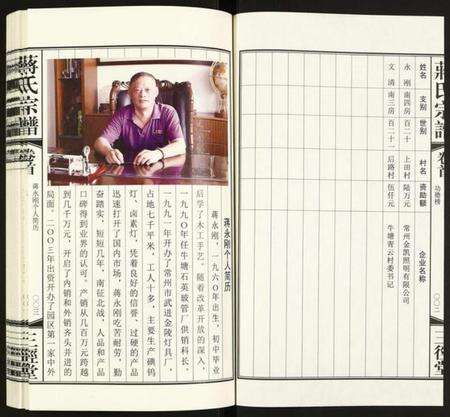 蔣氏宗譜
卷首
功勋榜
〇〇二
三徑堂
姓名 支别 世别 村名 资助额 企业名称
永刚 南四房 百二十一 上田村 陆万元 常州金凯照明有限公司
文清 南三房 百二十 后路村 伍仟元 牛塘青云村委书记
蒋永刚个人简历
蒋永刚，一九六〇年出生，初中毕业
后学了木工手艺。随着改革开放的深入，
一九九〇年任牛塘石英玻管厂供销科长。
一九九一年开办了常州市武进金陵灯具厂，
占地七千平米，工人十多，主要生产碘钨
灯、卤素灯，凭着良好的信誉、过硬的产品
迅速打开了国内市场，蒋永刚吃苦耐劳、勤
奋踏实，短短几年，南征北战，人品和产品
口碑得到业界的认可。产销从几百万元跨越
到几千万元，开启了内销和外销齐头并进的
局面。二〇〇三年出资开办了园区第一家中外
蔣氏宗譜
卷首
蒋永刚个人简历
〇〇三
三徑堂